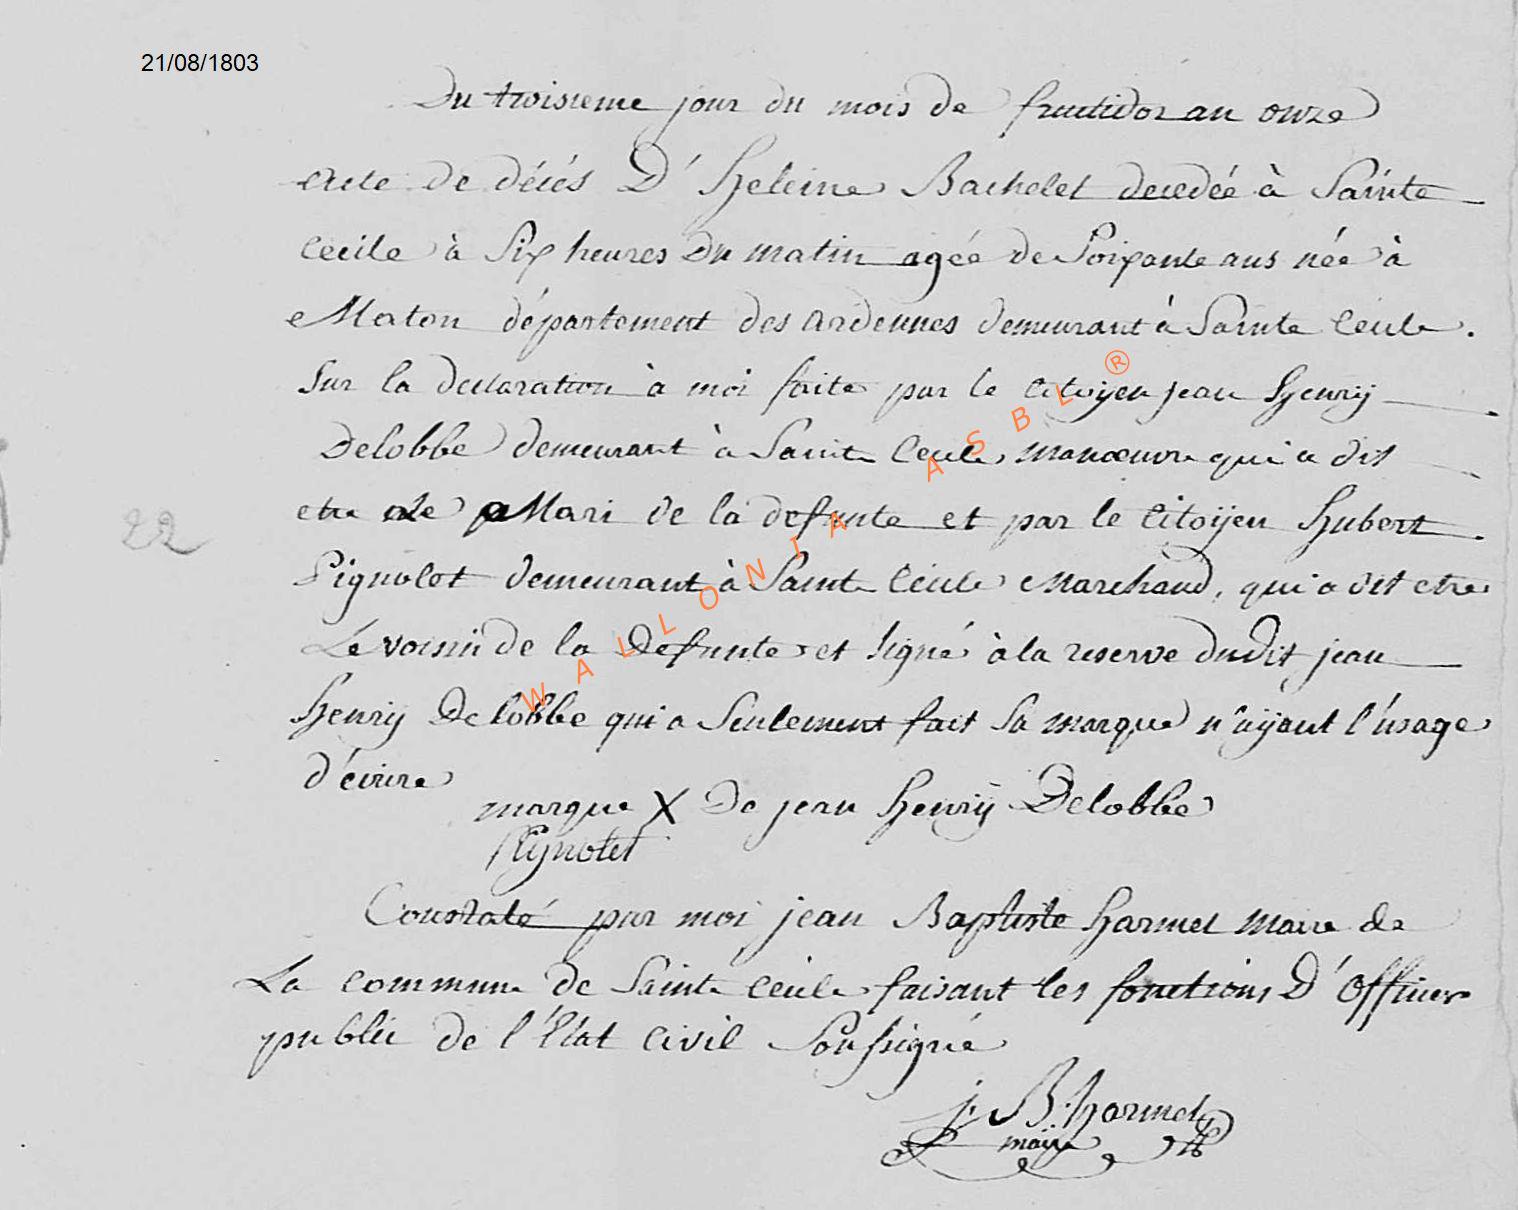 21/08/1803
Du troisieme jour du mois de fructidor an onze
acte de décés D'heleine Bachelet decedée à Sainte
Cecile à Six heures du matin agée de Soixante ans née à
Maton département des ardennes demeurant à Sainte Cecile.
Sur la declaration à moi faite par le Citoyen jean henry
Delobbe demeurant à Sainte Cecile manœuvre qui a dit
etre le Mari de la defunte et par le Citoÿen hubert
Pignolet demeurant à Sainte Cecile Marchand, qui a dit etre
Le voisin de la defunte et signé à la reserve dudit jean
henrij Delobbe qui a Seulement fait Sa marque n'aÿant l'usage
d'écrire
22
marque X de jean henrÿ Delobbe
Pignolet
Constaté par moi jean Baptiste harmel Maire de
La commune de Sainte Cecile faisant les fonctions D'officier
public de l'État Civil Soussigné
j. B. harmel
maire
WALLONIA ASBL ®